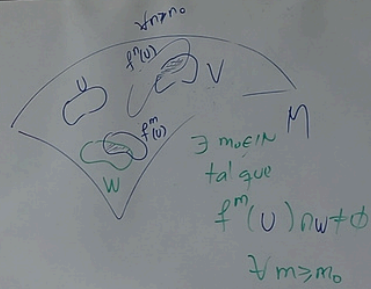 ∀n≥n₀
fⁿ(U)
U
V
M
fᵐ(U)
W
∃ m₀∈ℕ
tal que
fᵐ(U)∩W≠∅
∀ m≥m₀